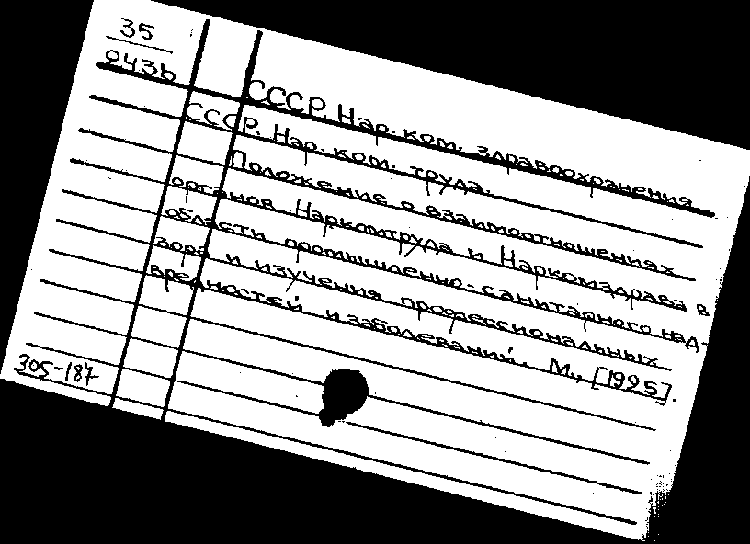 35
043b
СССР. Нар. ком. здравоохранения
СССР. Нар. ком. труда.
Положение о взаимоотношениях
органов Наркомтруда и Наркомздрава в
области промышленно-санитарного над-
зора и изучения профессиональных
вредностей и заболеваний. М., [1925].
305-187